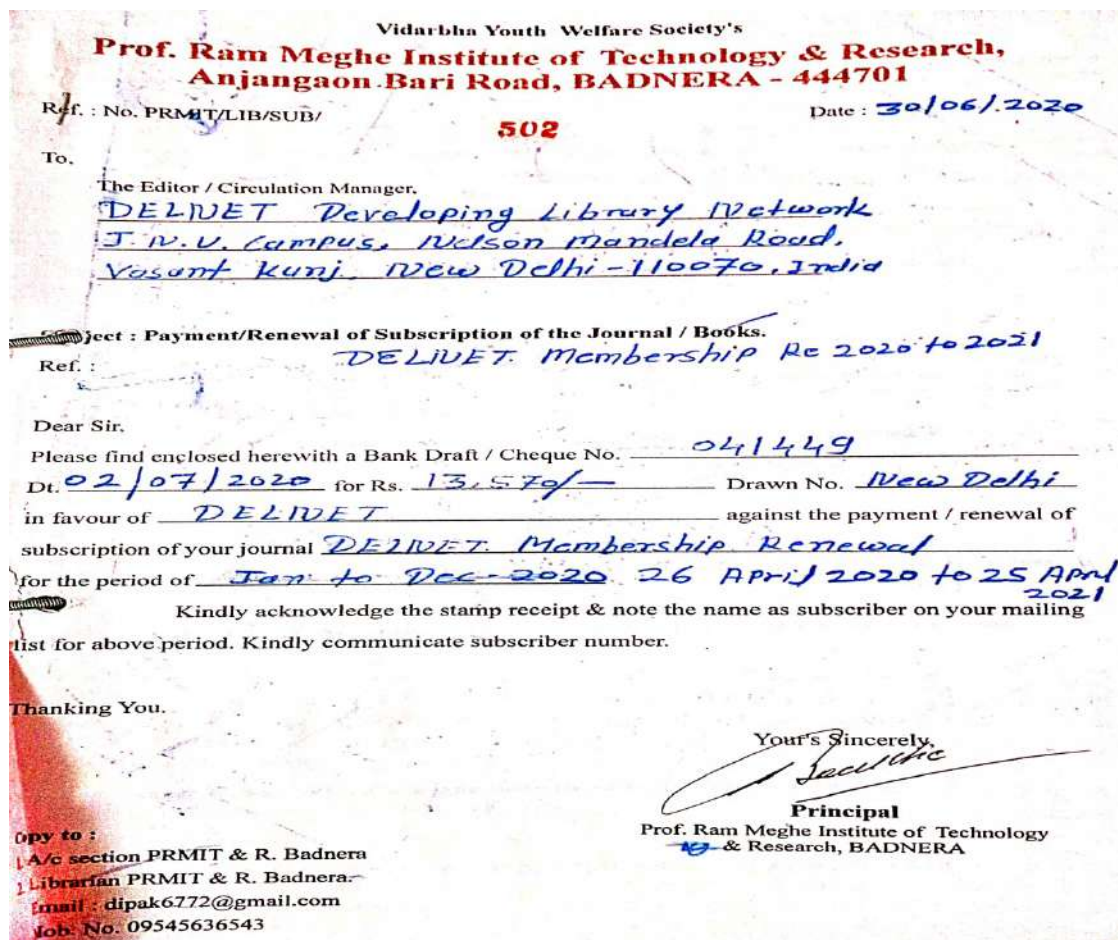 Vidarbha Youth Welfare Society's
Prof. Ram Meghe Institute of Technology & Research,
Anjangaon Bari Road, BADNERA - 444701
Ref. : No. PRMIT/LIB/SUB/
502
Date : 30/06/2020
To,
The Editor / Circulation Manager,
DELNET Developing Library Network
J.N.U. Campus, Nelson Mandela Road,
Vasant Kunj, New Delhi-110070, India
ject : Payment/Renewal of Subscription of the Journal / Books.
Ref. : DELNET Membership Re 2020 to 2021
Dear Sir,
Please find enclosed herewith a Bank Draft / Cheque No. 041449
Dt. 02/07/2020 for Rs. 13,570/- Drawn No. New Delhi
in favour of DELNET against the payment / renewal of
subscription of your journal DELNET Membership Renewal
for the period of Jan to Dec-2020 26 April 2020 to 25 April
2021
Kindly acknowledge the stamp receipt & note the name as subscriber on your mailing
list for above period. Kindly communicate subscriber number.
Thanking You.
Your's Sincerely,
Principal
Prof. Ram Meghe Institute of Technology
& Research, BADNERA
opy to :
1 A/c section PRMIT & R. Badnera
2 Librarian PRMIT & R. Badnera.
Email : dipak6772@gmail.com
Job. No. 09545636543